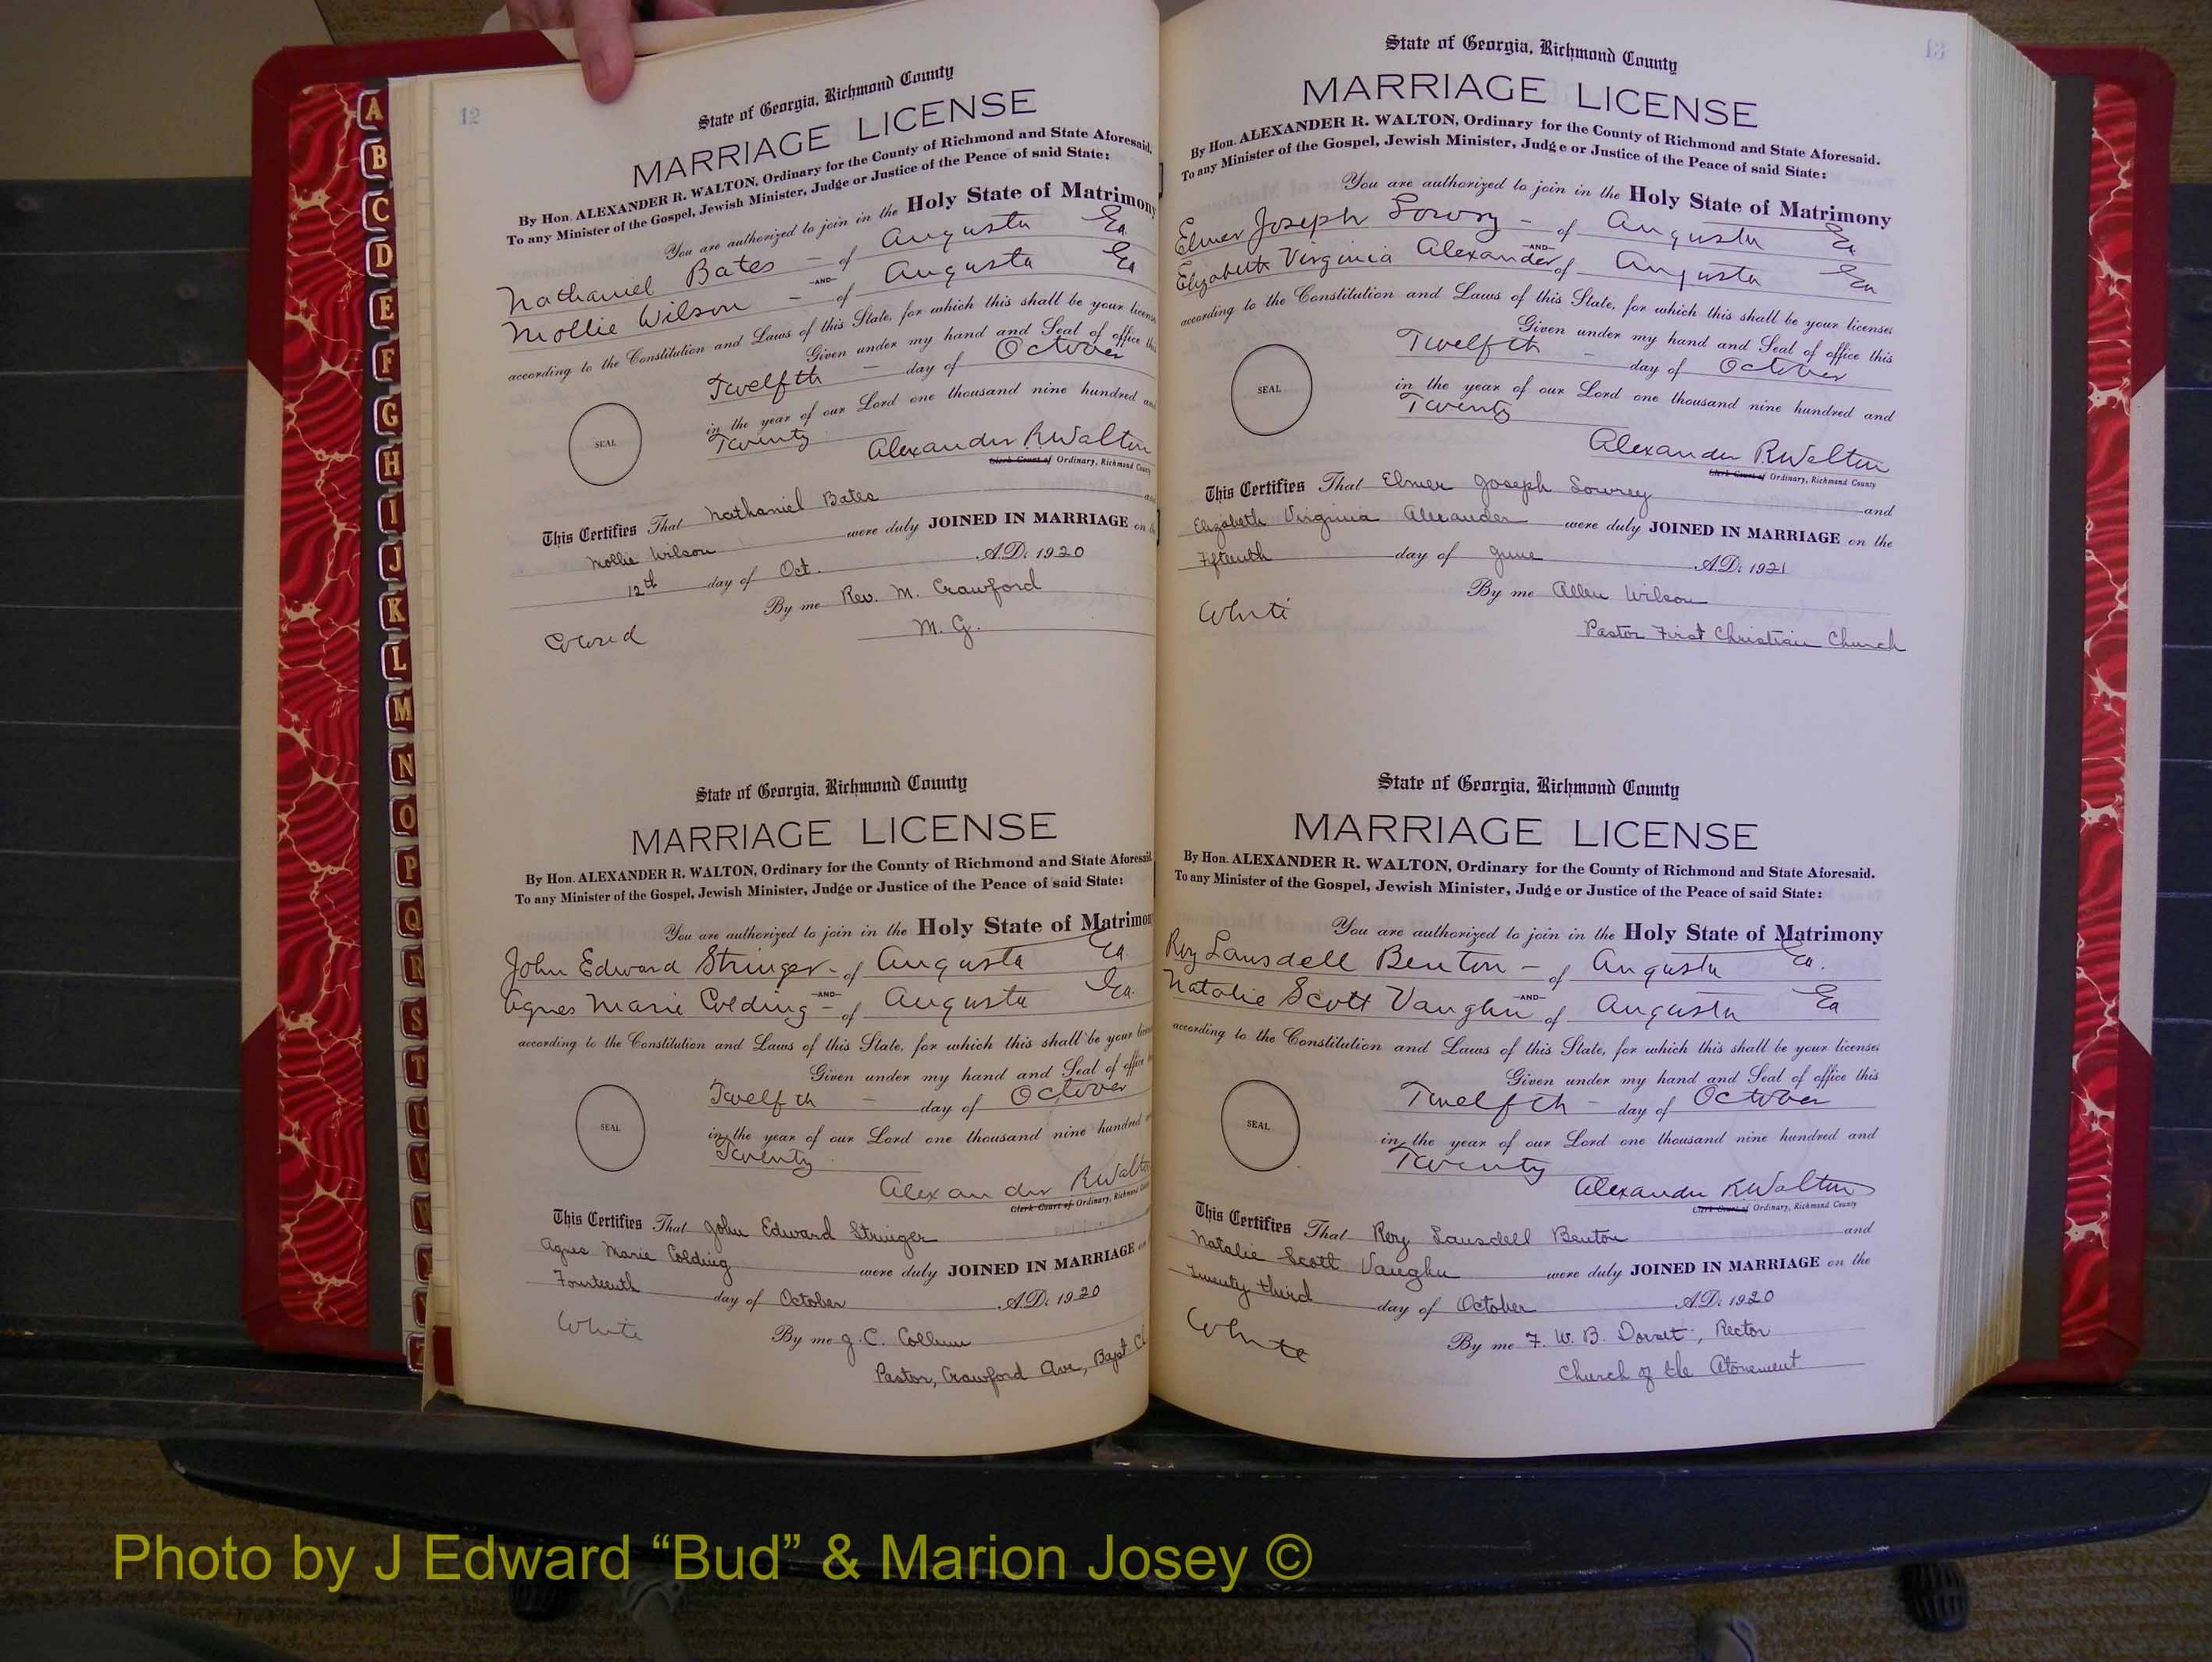 12
State of Georgia, Richmond County
MARRIAGE LICENSE
By Hon. ALEXANDER R. WALTON, Ordinary for the County of Richmond and State Aforesaid.
To any Minister of the Gospel, Jewish Minister, Judge or Justice of the Peace of said State:
You are authorized to join in the Holy State of Matrimony
Nathaniel Bates - of Augusta Ga
-AND-
Mollie Wilson - of Augusta Ga
according to the Constitution and Laws of this State, for which this shall be your license
Given under my hand and Seal of office this
Twelfth - day of October
in the year of our Lord one thousand nine hundred and
Twenty
SEAL
Alexander R Walton
Clerk Court of Ordinary, Richmond County
This Certifies That Nathaniel Bates and
Mollie Wilson were duly JOINED IN MARRIAGE on the
12th day of Oct. A.D. 1920
By me Rev. M. Crawford
M. G.
Colored
State of Georgia, Richmond County
MARRIAGE LICENSE
By Hon. ALEXANDER R. WALTON, Ordinary for the County of Richmond and State Aforesaid.
To any Minister of the Gospel, Jewish Minister, Judge or Justice of the Peace of said State:
You are authorized to join in the Holy State of Matrimony
John Edward Stringer - of Augusta Ga.
-AND-
Agnes Marie Colding - of Augusta Ga.
according to the Constitution and Laws of this State, for which this shall be your license
Given under my hand and Seal of office
Twelfth - day of October
in the year of our Lord one thousand nine hundred
Twenty
SEAL
Alexander R Walton
Clerk Court of Ordinary, Richmond County
This Certifies That John Edward Stringer
Agnes Marie Colding were duly JOINED IN MARRIAGE on
Fourteenth day of October A.D. 1920
White
By me J. C. Collum
Pastor, Crawford Ave, Bapt Ch.
13
State of Georgia, Richmond County
MARRIAGE LICENSE
By Hon. ALEXANDER R. WALTON, Ordinary for the County of Richmond and State Aforesaid.
To any Minister of the Gospel, Jewish Minister, Judge or Justice of the Peace of said State:
You are authorized to join in the Holy State of Matrimony
Elmer Joseph Sowry - of Augusta Ga
-AND-
Elizabeth Virginia Alexander of Augusta Ga
according to the Constitution and Laws of this State, for which this shall be your license
Given under my hand and Seal of office this
Twelfth - day of October
in the year of our Lord one thousand nine hundred and
Twenty
SEAL
Alexander R Walton
Clerk Court of Ordinary, Richmond County
This Certifies That Elmer Joseph Sowrey and
Elizabeth Virginia Alexander were duly JOINED IN MARRIAGE on the
Fifteenth day of June A.D. 1921
By me Allen Wilson
White
Pastor First Christian Church
State of Georgia, Richmond County
MARRIAGE LICENSE
By Hon. ALEXANDER R. WALTON, Ordinary for the County of Richmond and State Aforesaid.
To any Minister of the Gospel, Jewish Minister, Judge or Justice of the Peace of said State:
You are authorized to join in the Holy State of Matrimony
Roy Lansdell Benton - of Augusta Ga.
-AND-
Natalie Scott Vaughn of Augusta Ga
according to the Constitution and Laws of this State, for which this shall be your license
Given under my hand and Seal of office this
Twelfth - day of October
in the year of our Lord one thousand nine hundred and
Twenty
SEAL
Alexander R. Walton
Clerk Court of Ordinary, Richmond County
This Certifies That Roy Lansdell Benton and
Natalie Scott Vaughn were duly JOINED IN MARRIAGE on the
Twenty third day of October A.D. 1920
White
By me F. W. B. Dorset, Rector
Church of the Atonement
A
B
C
D
E
F
G
H
I
J
K
L
M
N
O
P
Q
R
S
T
U
V
W
Photo by J Edward “Bud” & Marion Josey ©